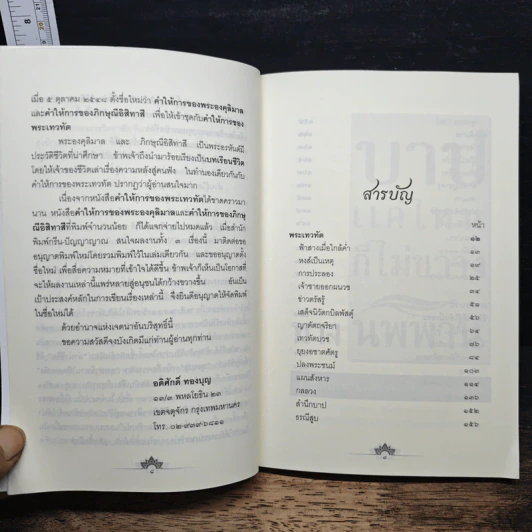 เมื่อ ๕ ตุลาคม ๒๕๔๘ ตั้งชื่อใหม่ว่า คำให้การของพระองคุลิมาล
และคำให้การของภิกษุณีอิสิทาสี เพื่อให้เข้าชุดกับคำให้การของ
พระเทวทัต
พระองคุลิมาล และ ภิกษุณีอิสิทาสี เป็นพระอรหันต์มี
ประวัติชีวิตที่น่าศึกษา ข้าพเจ้าจึงนำมาร้อยเรียงเป็นบทเรียนชีวิต
โดยให้เจ้าของชีวิตเล่าเรื่องความหลังสู่คนฟัง ในทำนองเดียวกันกับ
คำให้การของพระเทวทัต ปรากฏว่าผู้อ่านสนใจมาก
เนื่องจากหนังสือคำให้การของพระเทวทัตได้ขาดคราวมา
นาน หนังสือคำให้การของพระองคุลิมาลและคำให้การของภิกษุ
ณีอิสิทาสีที่พิมพ์จำนวนน้อย ก็ได้แจกจ่ายไปหมดแล้ว เมื่อสำนัก
พิมพ์กรีน-ปัญญาญาณ สนใจผลงานทั้ง ๓ เรื่องนี้ มาติดต่อขอ
อนุญาตพิมพ์ใหม่โดยรวมพิมพ์ไว้ในเล่มเดียวกัน และขออนุญาตตั้ง
ชื่อใหม่ เพื่อสื่อความหมายที่เข้าใจได้ดีขึ้น ข้าพเจ้าก็เห็นเป็นโอกาสดี
จะให้ผลงานเหล่านี้แพร่หลายสู่อนุชนได้กว้างขวางขึ้น อันเป็น
เป้าประสงค์หลักในการเขียนเรื่องเหล่านี้ จึงยินดีอนุญาตให้จัดพิมพ์
ในชื่อใหม่ได้
ด้วยอำนาจแห่งเจตนาอันบริสุทธิ์นี้
ขอความสวัสดีจงบังเกิดมีแก่ท่านผู้อ่านทุกท่าน
อดิศักดิ์ ทองบุญ
๑๓/๓ พหลโยธิน ๒๓
เขตจตุจักร กรุงเทพมหานคร
โทร ๐๒-๙๓๙-๖๘๑๑
๘
สารบัญ
หน้า
พระเทวทัต ๑๒
ฟ้าสางเมื่อใกล้ค่ำ
พงส์เป็นเหตุ
การประลอง
เจ้าชายออกผนวช
ข่าวตรัสรู้
เสด็จนิวัตกบิลพัสดุ์
ญาตัตถจริยา
เทวทัตบวช
ยุยงอชาตศัตรู
ปลงพระชนม์ ๑๐๓
แผนสังหาร ๑๑๕
กลลวง
สำนึกบาป ๑๕๒
ธรณีสูบ ๑๕๖